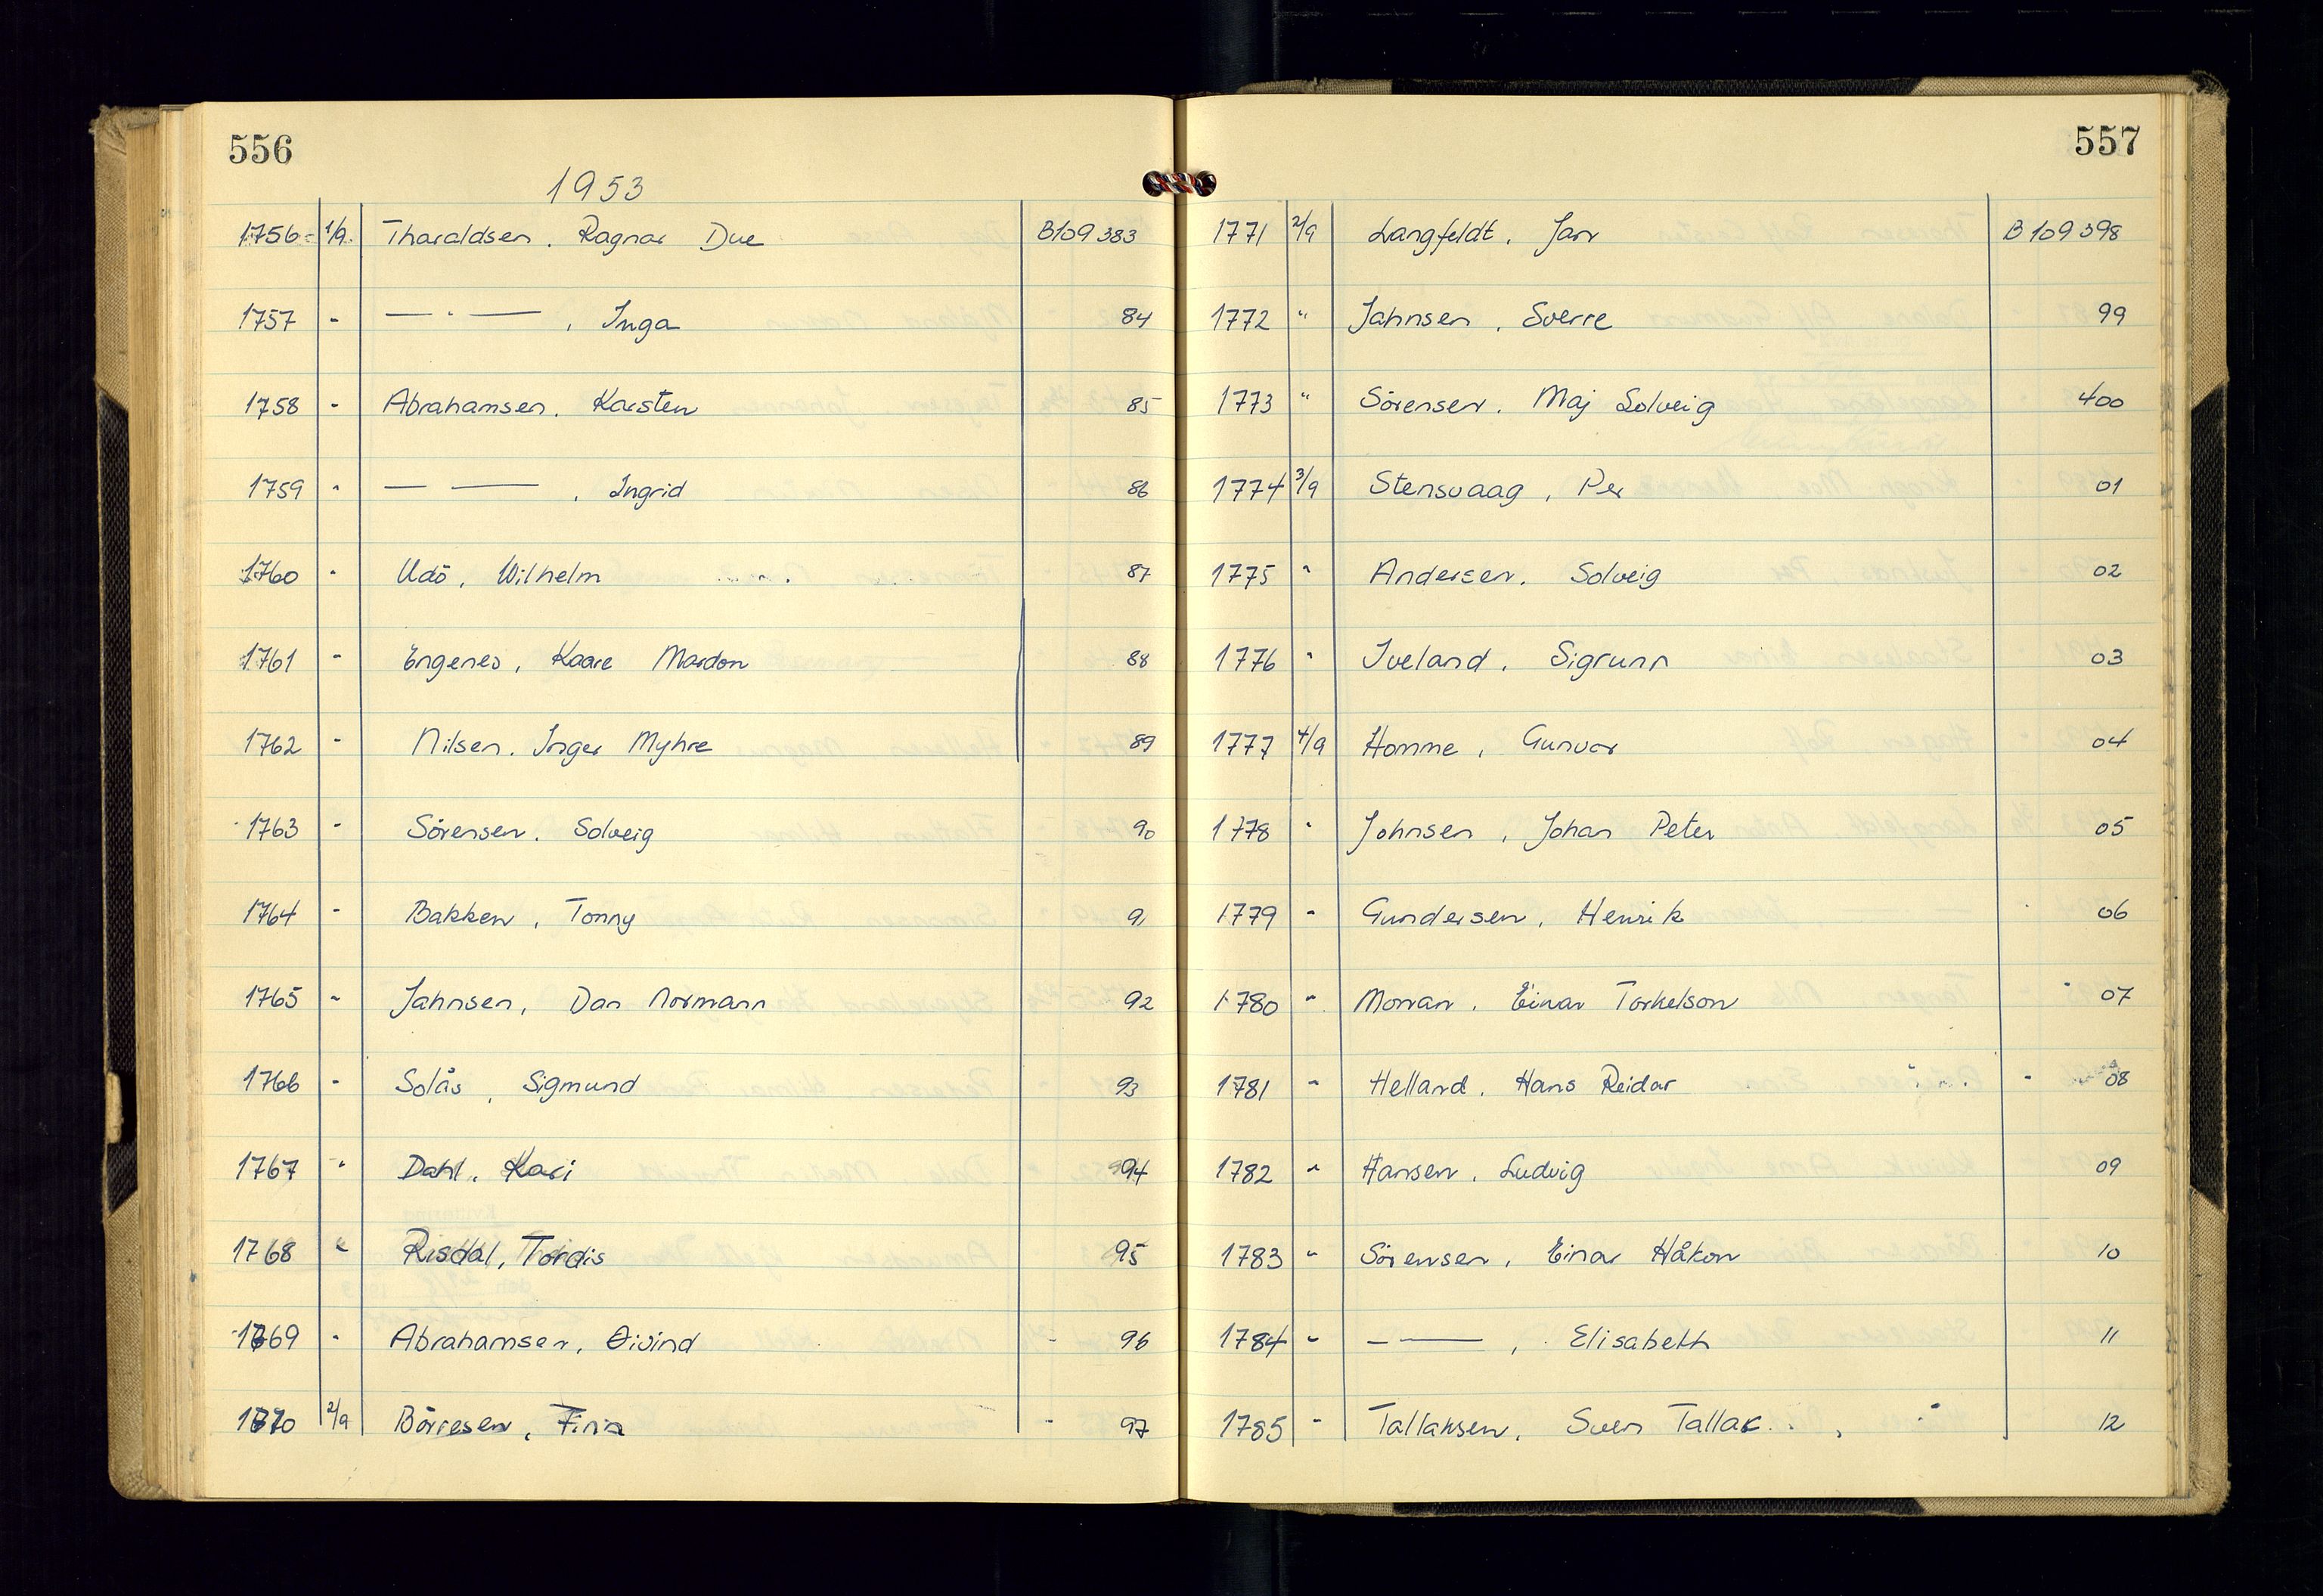 556
1953
1756 1/9 Tharaldsen, Ragnar Due B109383
1757 - — " — , Inga 84
1758 - Abrahamsen, Karsten 85
1759 - — — , Ingrid 86
1760 - Udö, Wilhelm 87
1761 - Engenes, Kaare Mardon 88
1762 - Nilsen, Inger Myhre 89
1763 - Sörensen, Solveig 90
1764 - Bakken, Tonny 91
1765 - Jahnsen, Dan Normann 92
1766 - Solås, Sigmund 93
1767 - Dahl, Kari 94
1768 " Risdal, Tordis 95
1769 - Abrahamsen, Øivind 96
1770 2/9 Börresen, Finn 97
557
1771 2/9 Langfeldt, Jan B109398
1772 " Jahnsen, Sverre 99
1773 " Sörensen, Maj Solveig 400
1774 3/9 Stensvaag, Per 01
1775 " Andersen, Solveig 02
1776 " Iveland, Sigrunn 03
1777 4/9 Homme, Gunvor 04
1778 " Johnsen, Johan Peter 05
1779 - Gundersen, Henrik 06
1780 " Monan, Einar Torkelson 07
1781 - Helland, Hans Reidar 08
1782 - Hansen, Ludvig 09
1783 - Sörensen, Einar Håkon 10
1784 - — — , Elisabeth 11
1785 - Tallaksen, Sven Tallak 12